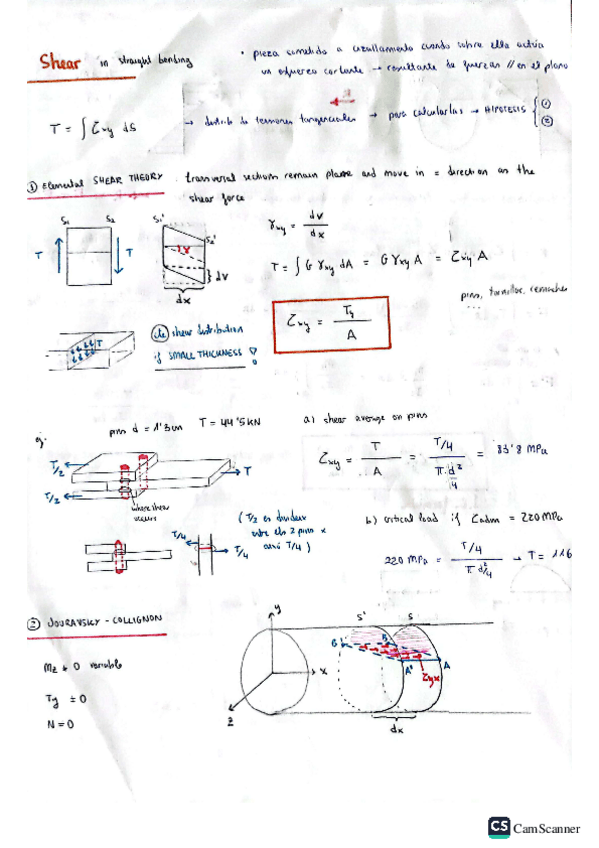 Shear in straight bending
• pieza sometida a cizallamiento cuando sobre ella actúa
un esfuerzo cortante → resultante de fuerzas // en el plano
T = ∫ τxy dS → distrib de tensiones tangenciales → para calcularlas → HIPOTESIS { ① ②
① ELEMENTAL SHEAR THEORY. transversal sections remain plane and move in = direction as the
shear force
S₁ S₂ S₁' S₂'
T T γ dv
dx
γxy = dv / dx
T = ∫ G γxy dA = G γxy A = τxy · A
pins, tornillos, remaches
τxy = Ty / A
T
cte shear distribution
if SMALL THICKNESS !
ej. pins d = 1'3 cm T = 44'5 kN
T/2 T/2 T
where shear
occurs
a) shear average on pins
τxy = T / A = T/4 / π · d²/4 = 83'8 MPa
(T/2 es dividem
entre els 2 pins x
això T/4)
T/4 T/4
b) critical load if τadm = 220 MPa
220 MPa = T/4 / π d²/4 → T = 116
② JOURAVSKY - COLLIGNON
Mz ≠ 0 variable
Ty ≠ 0
N = 0
y x z
S' S
B' B A' A
τyx
dx
CS CamScanner